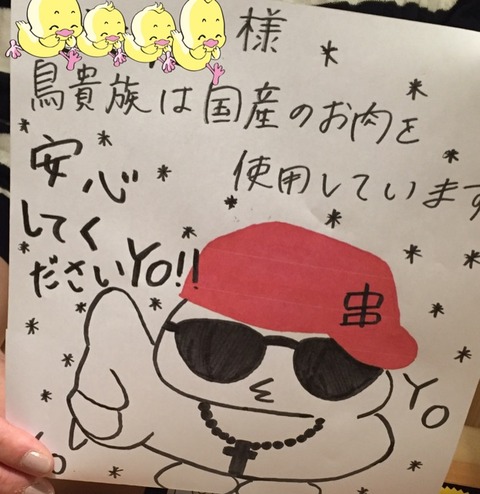 様
鳥貴族は国産のお肉を
使用しています
安心
してく
ださいYO!!
串
YO
YO